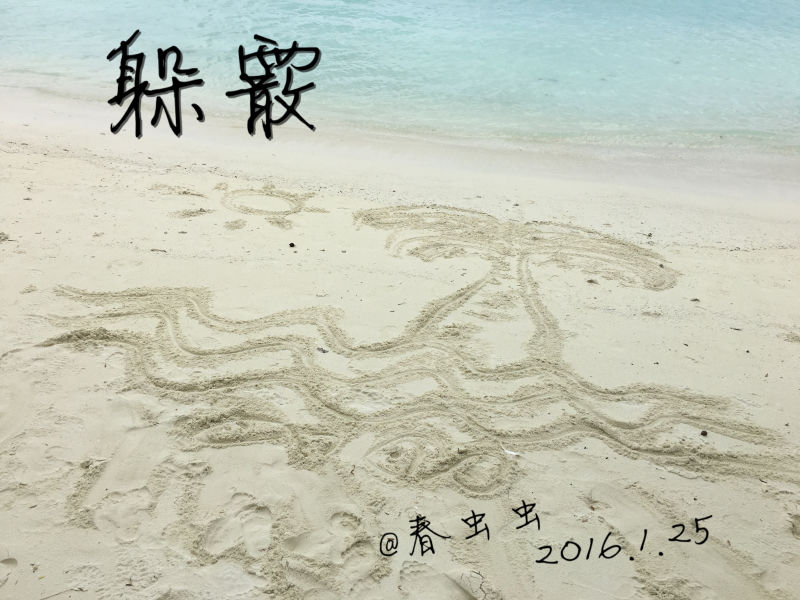 躲霰
@春虫虫
2016.1.25